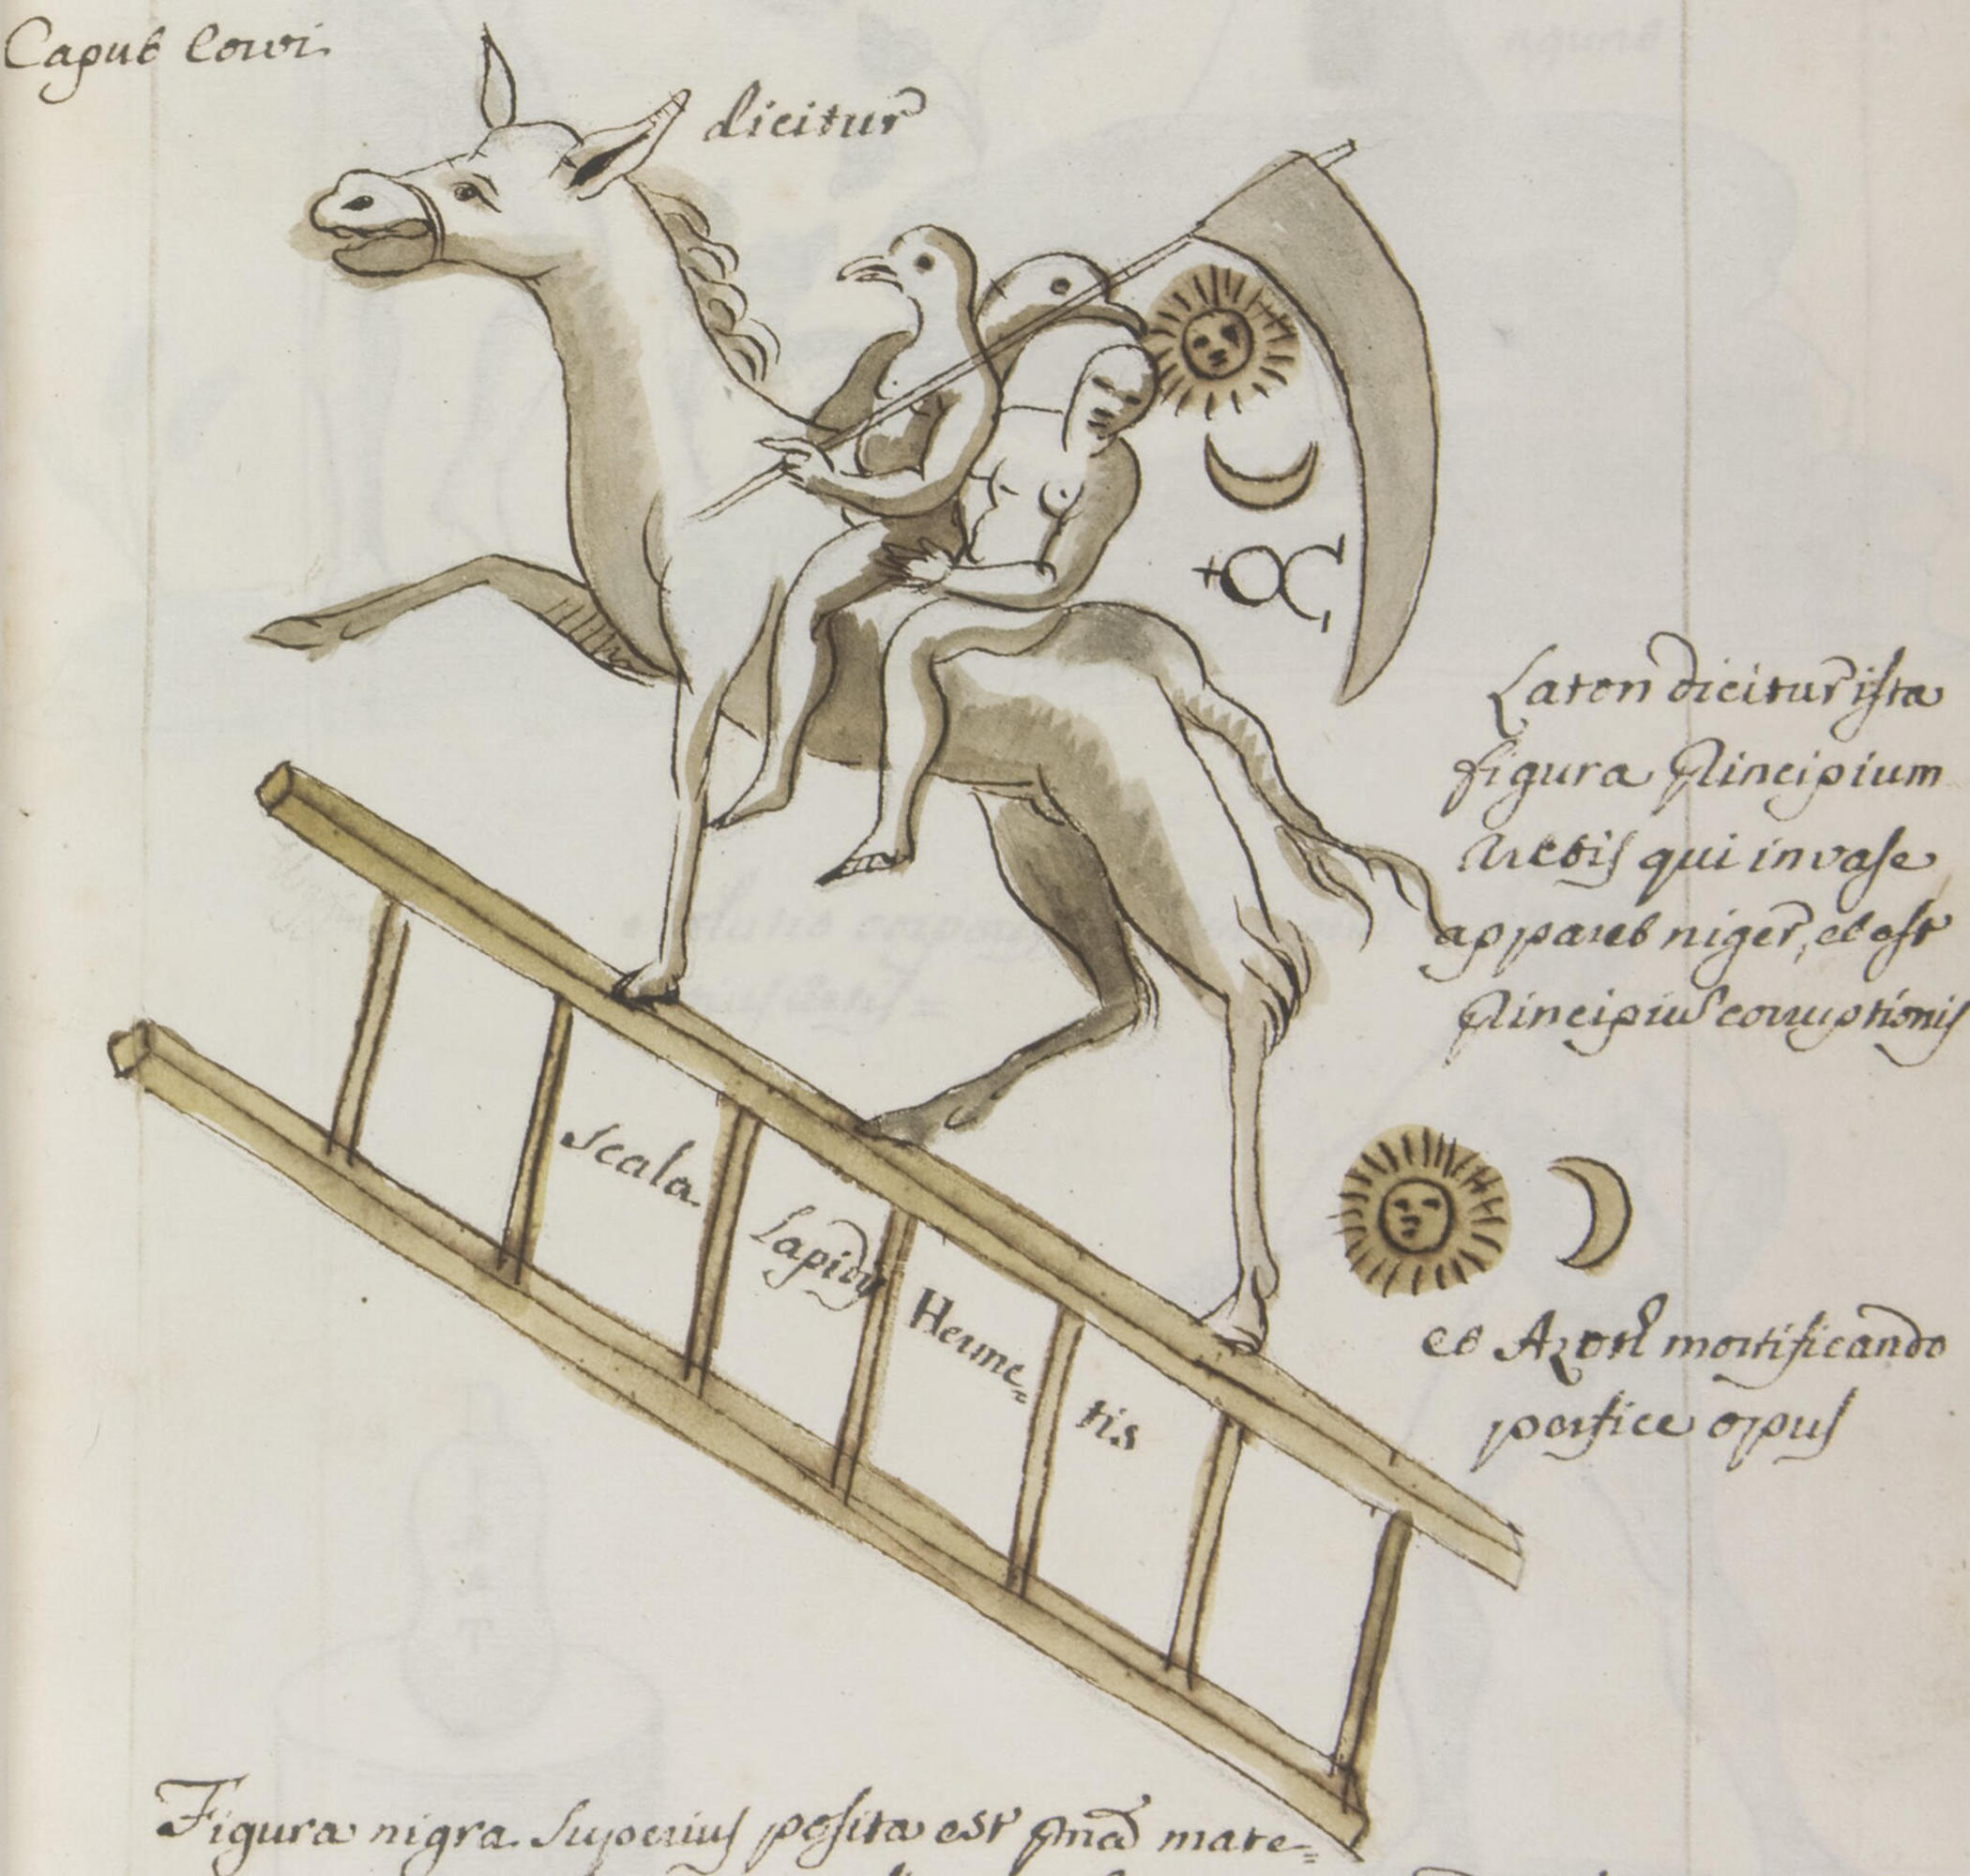 Caput Corvi
dicitur
Laton dicitur ista
figura Principium
Artis qui in vase
apparet niger, et est
Principiu corruptionis
Scala
Lapidis
Herme=
tis
et Azoth mortificando
perfice opus
Figura nigra Superius posita est mate=